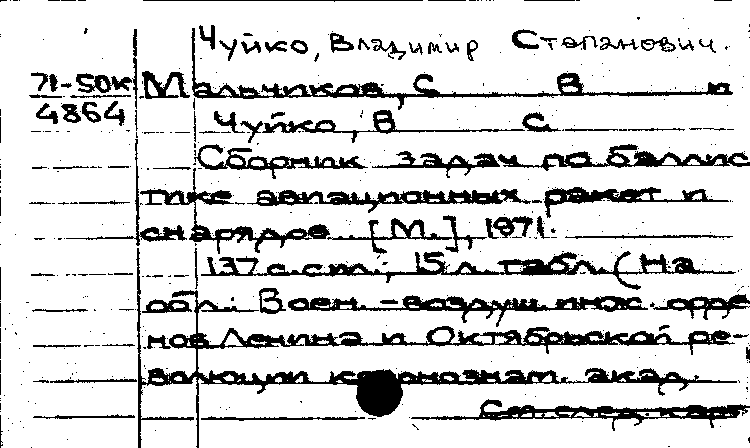 Чуйко, Владимир Степанович.
71-50к Мальчиков, С В и
4864 Чуйко, В С
Сборник задач по баллис
тике авиационных ракет и
снарядов. [М.], 1971.
137 с. с ил.; 15 л. табл. (На
обл.: Воен.-воздуш. инж. орде
нов Ленина и Октябрьской ре-
волюции краснознам. акад.
См. след. карт